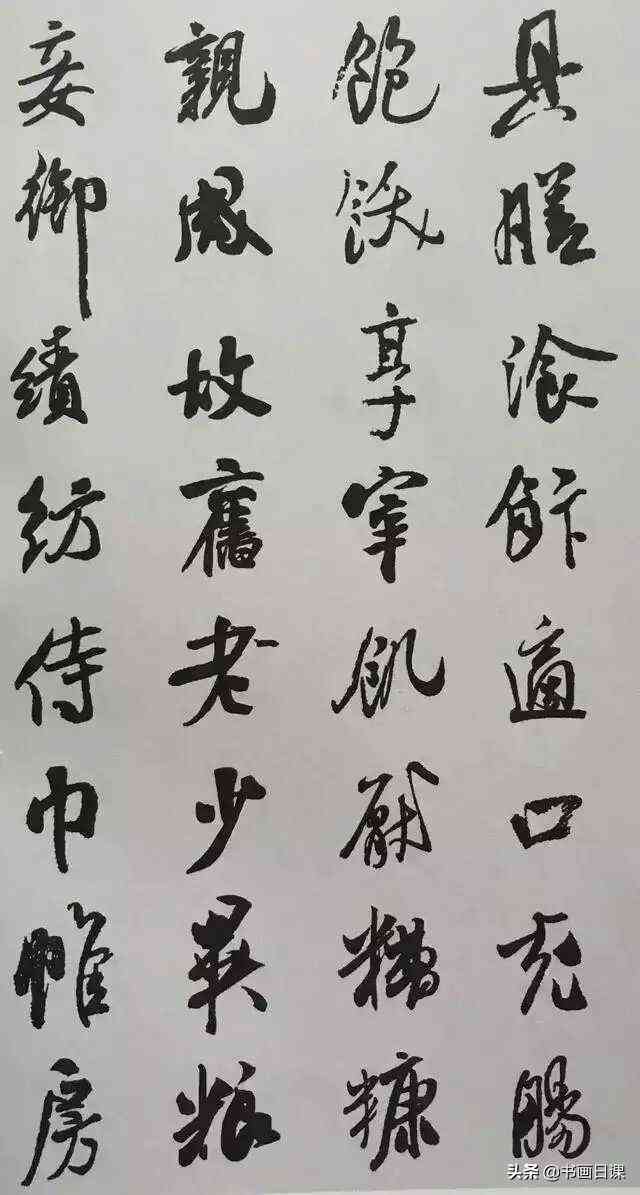 具膳湌飰適口充腸
飽飫享宰飢厭糟糠
親戚故舊老少異粮
妾御績紡侍巾帷房
头条 @书画日课